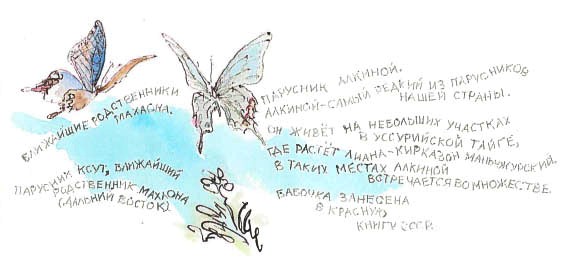 БЛИЖАЙШИЕ РОДСТВЕННИКИ
МАХАОНА.
ПАРУСНИК КСУТ, БЛИЖАЙШИЙ
РОДСТВЕННИК МАХАОНА
(ДАЛЬНИЙ ВОСТОК)
ПАРУСНИК АЛКИНОЙ.
АЛКИНОЙ-САМЫЙ РЕДКИЙ ИЗ ПАРУСНИКОВ
НАШЕЙ СТРАНЫ.
ОН ЖИВЁТ НА НЕБОЛЬШИХ УЧАСТКАХ
В УССУРИЙСКОЙ ТАЙГЕ,
ГДЕ РАСТЁТ ЛИАНА-КИРКАЗОН МАНЬЧЖУРСКИЙ.
В ТАКИХ МЕСТАХ АЛКИНОЙ
ВСТРЕЧАЕТСЯ ВО МНОЖЕСТВЕ.
БАБОЧКА ЗАНЕСЕНА
В КРАСНУЮ
КНИГУ СССР.